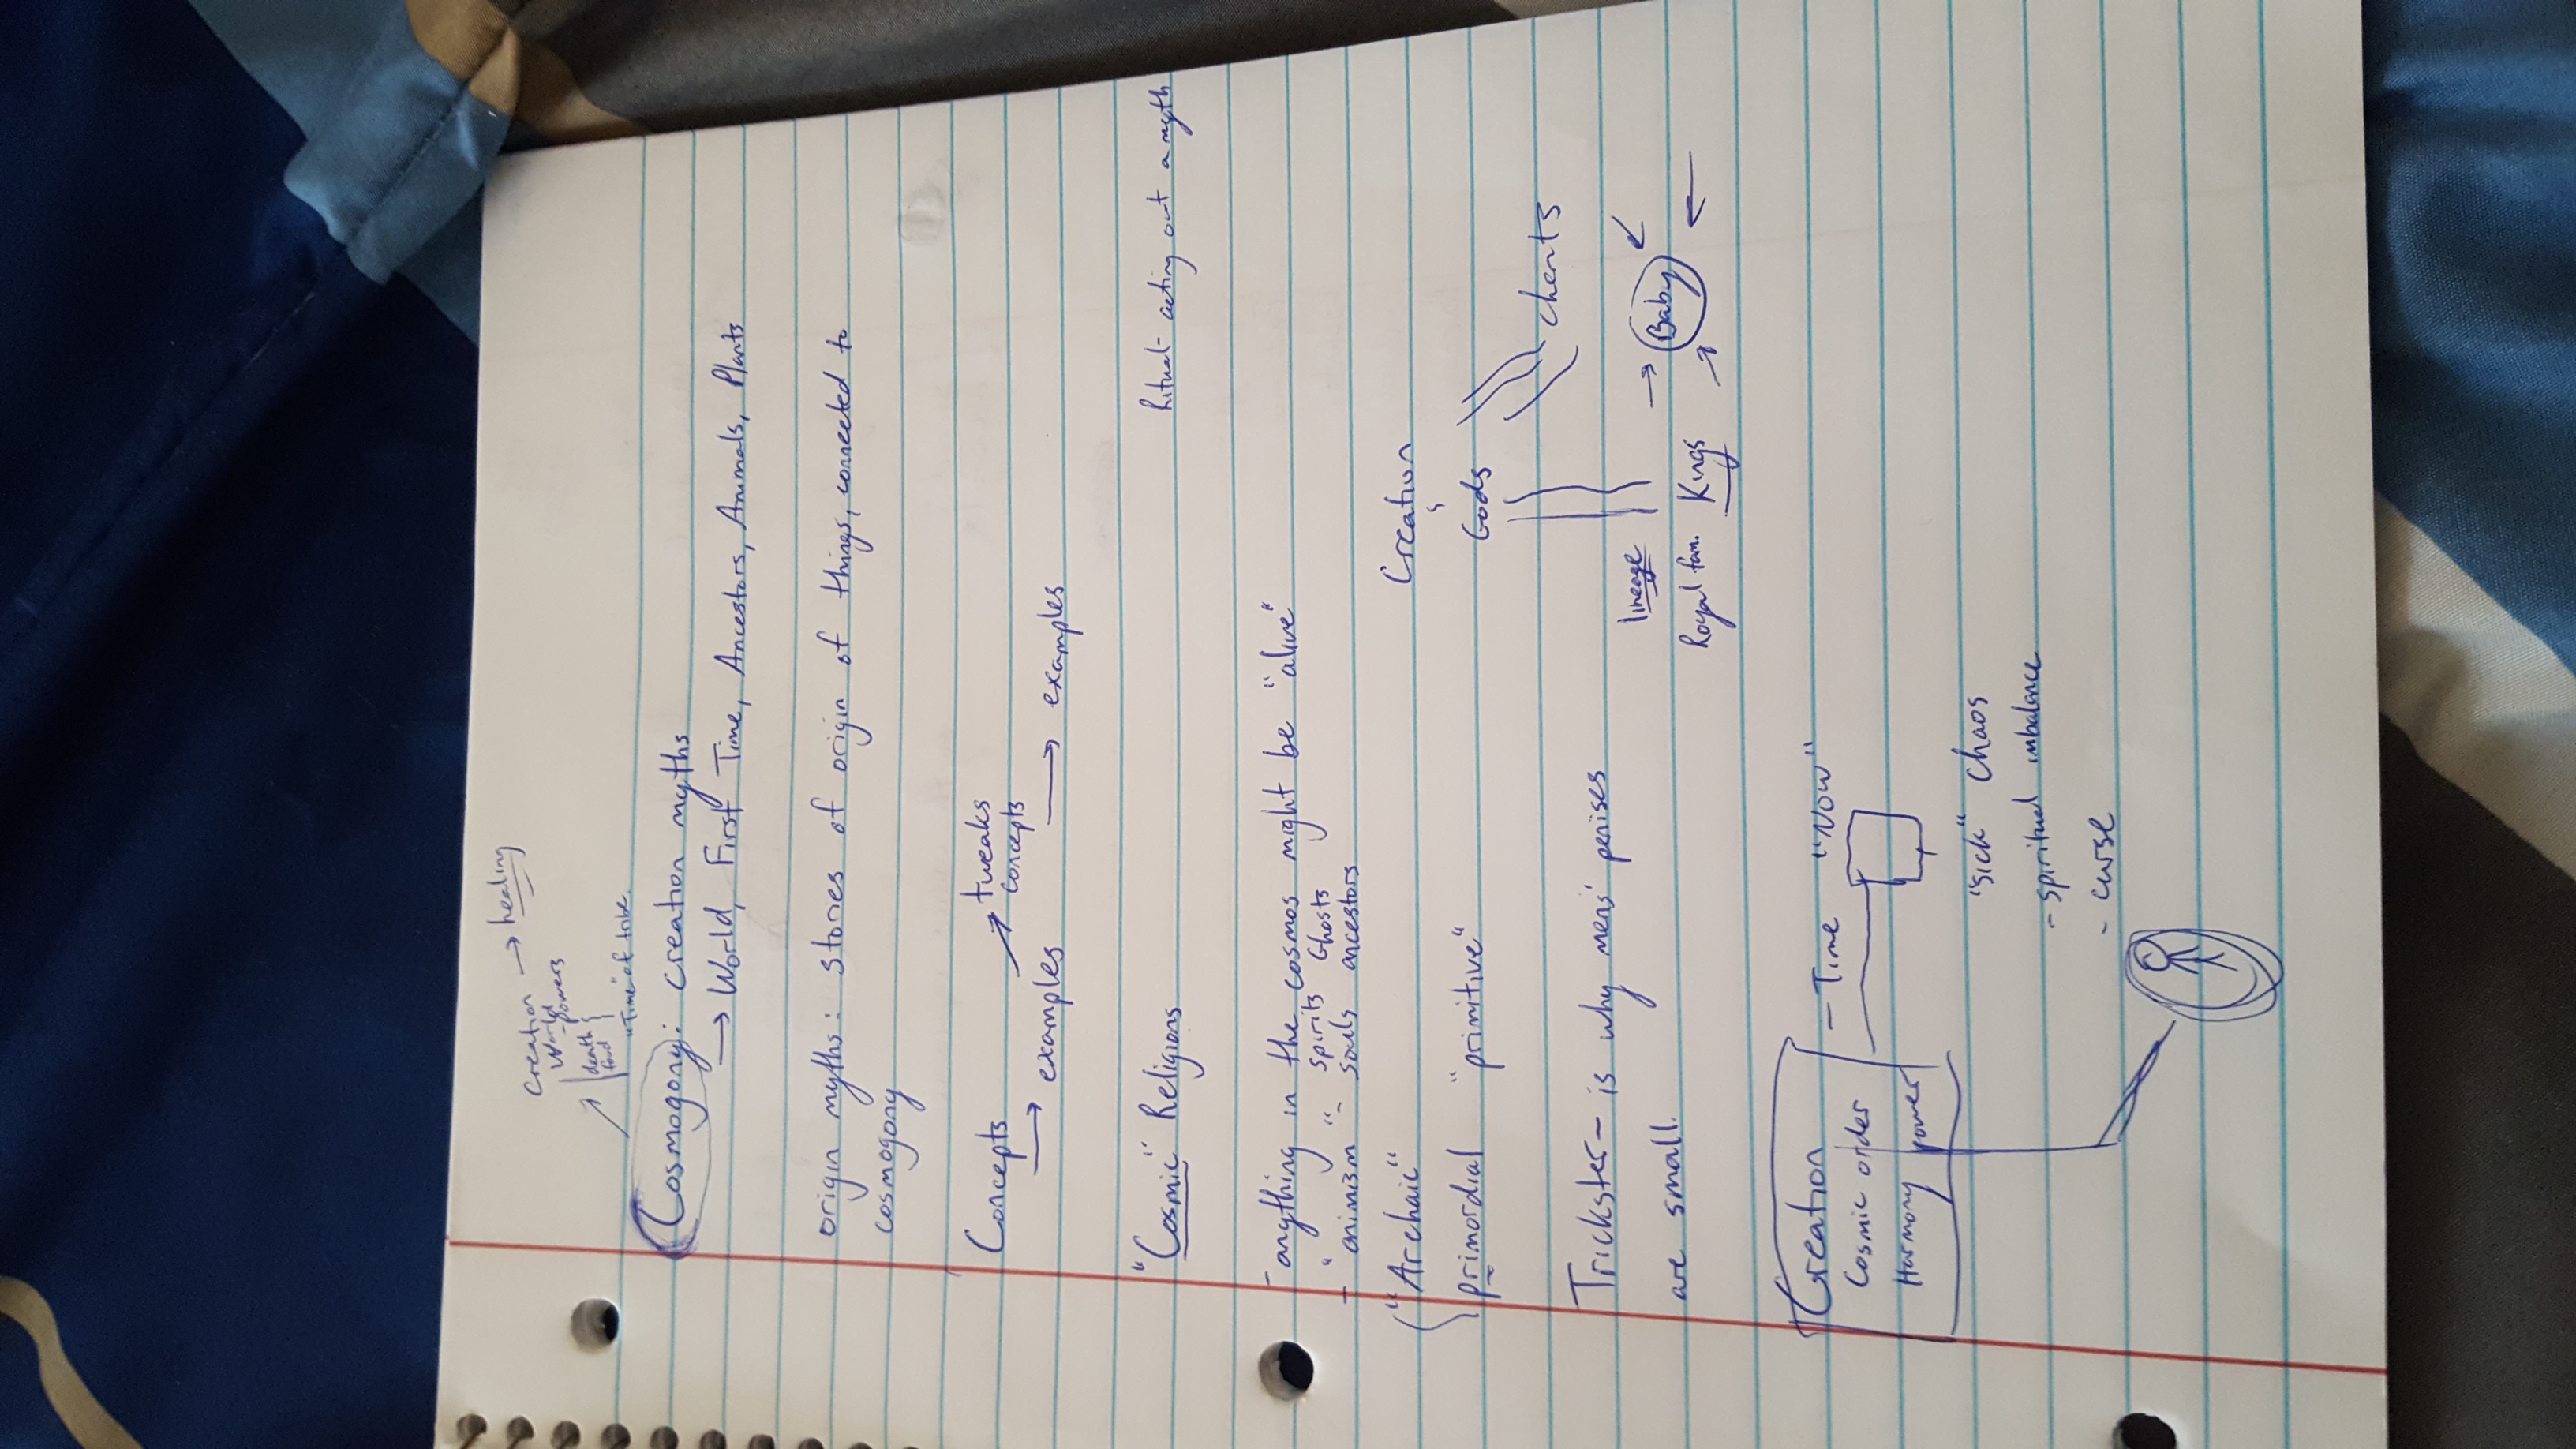 Creation → healing
World
-powers
death
food
"Time" of tribe.
Cosmogony: creation myths
→ World, First Time, Ancestors, Animals, Plants
origin myths: stories of origin of things, connected to
cosmogony
Concepts
→ examples
→ tweaks
concepts
→ examples
"Cosmic" Religions
Ritual- acting out a myth
- anything in the cosmos might be "alive"
spirits Ghosts
- "animism" - souls ancestors
"Archaic"
primordial "primitive"
Creation
Gods
chants
Trickster - is why mens' penises
are small.
lineage
Royal fam. Kings
→ Baby
Creation
Cosmic order
Harmony power
- Time "Now"
"sick" chaos
- spiritual imbalance
- curse